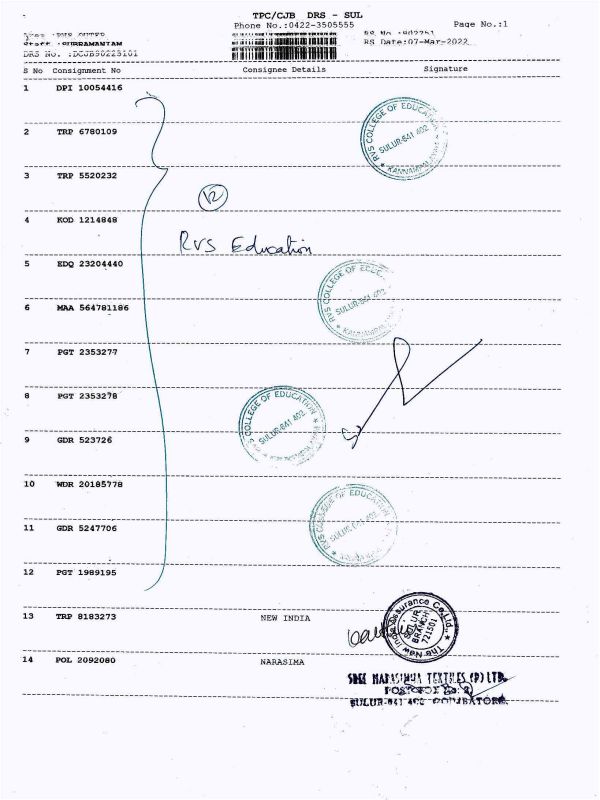 TPC/CJB DRS - SUL
Phone No.:0422-3505555 Page No.:1
Area :RVS OUTER RS No :902251
Staff :SUBRAMANIAM RS Date:07-Mar-2022
DRS No. :DCJB90223101
S No Consignment No Consignee Details Signature
1 DPI 10054416
RVS COLLEGE OF EDUCATION
SULUR-641 402
2 TRP 6780109
3 TRP 5520232
12
4 KOD 1214848
RVS Education
5 EDQ 23204440
RVS COLLEGE OF EDUC
SULUR-641 402
6 MAA 564781186
7 PGT 2353277
8 PGT 2353278
RVS COLLEGE OF EDUCATION
SULUR-641 402
9 GDR 523726
10 WDR 20185778
RVS COLLEGE OF EDUCATION
SULUR-641 402
11 GDR 5247706
12 PGT 1989195
13 TRP 8183273 NEW INDIA
The New India Assurance Co.Ltd.,
SULUR
BRANCH
721501
14 POL 2092080 NARASIMA
SREE NARASIMHA TEXTILES (P) LTD.
SULUR-641 402 COIMBATORE.